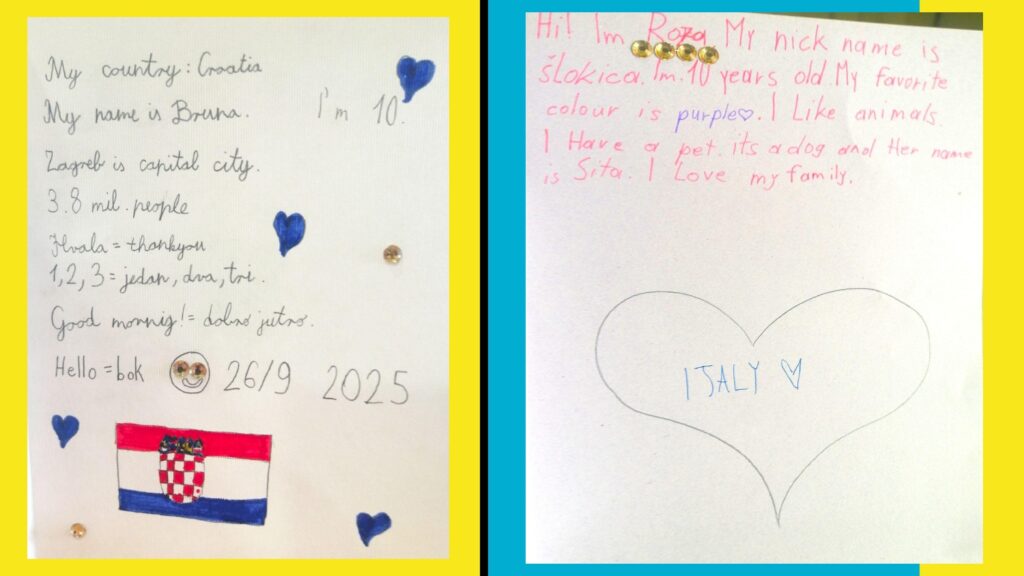 My country: Croatia
My name is Bruna. I'm 10.
Zagreb is capital city.
3.8 mil. people
Hvala = thankyou
1, 2, 3 = jedan, dva, tri.
Good mornig! = dobro jutro.
Hello = bok 26/9 2025
Hi! Im Roza My nick name is
šlokica. Im 10 years old My favorite
colour is purple♡. I Like animals.
I Have a pet. its a dog and Her name
is Sita. I Love my family.
I JALY ♡